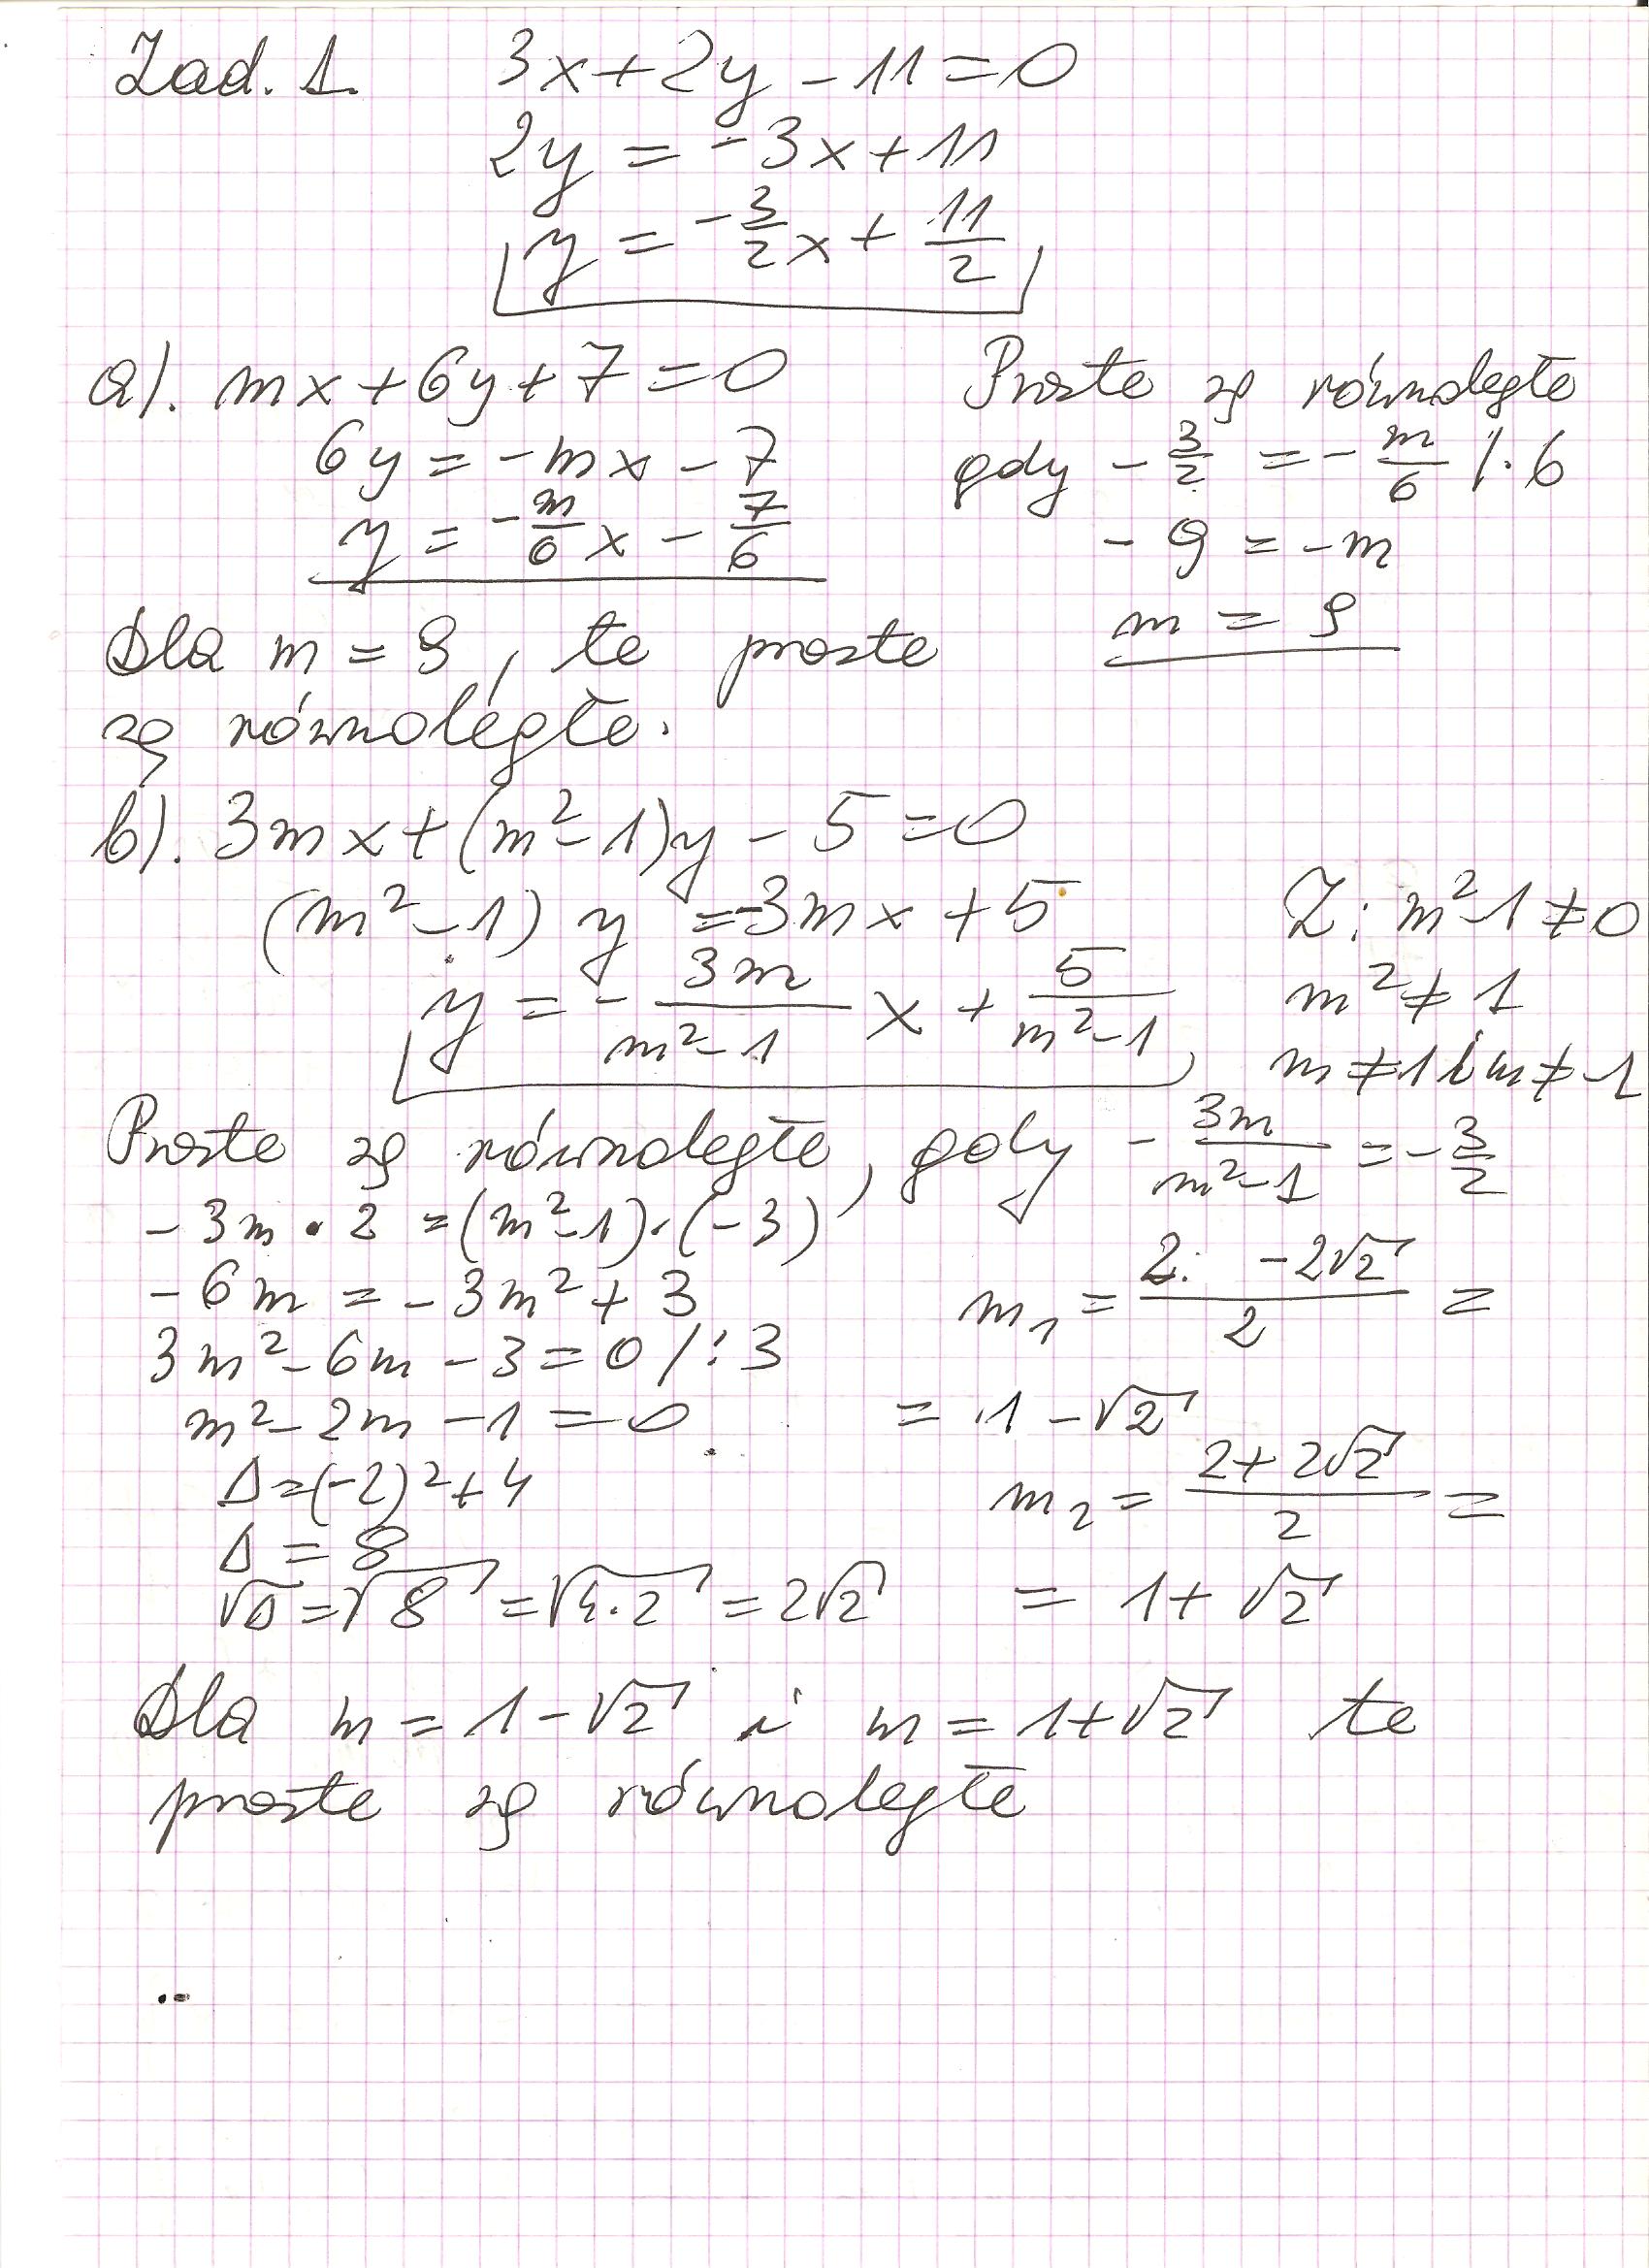 Zad. 1. 3x+2y-11=0
2y = -3x+11
y = -3/2 x + 11/2
a). mx+6y+7=0
6y = -mx - 7
y = -m/6 x - 7/6
Proste są równoległe
gdy -3/2 = -m/6 /·6
-9 = -m
m = 9
Dla m = 9, te proste
są równoległe.
b). 3mx+(m²-1)y-5=0
(m²-1) y = -3mx+5
y = - 3m/(m²-1) x + 5/(m²-1)
Z: m²-1≠0
m²≠1
m≠1 i m≠-1
Proste są równoległe, gdy - 3m/(m²-1) = -3/2
-3m · 2 = (m²-1)·(-3)
-6m = -3m²+3
3m²-6m-3=0 /:3
m²-2m-1=0
Δ=(-2)²+4
Δ = 8
√Δ=√8=√4·2=2√2
m₁ = (2-2√2)/2 =
= 1-√2
m₂ = (2+2√2)/2 =
= 1+√2
Dla m = 1-√2 i m = 1+√2 te
proste są równoległe